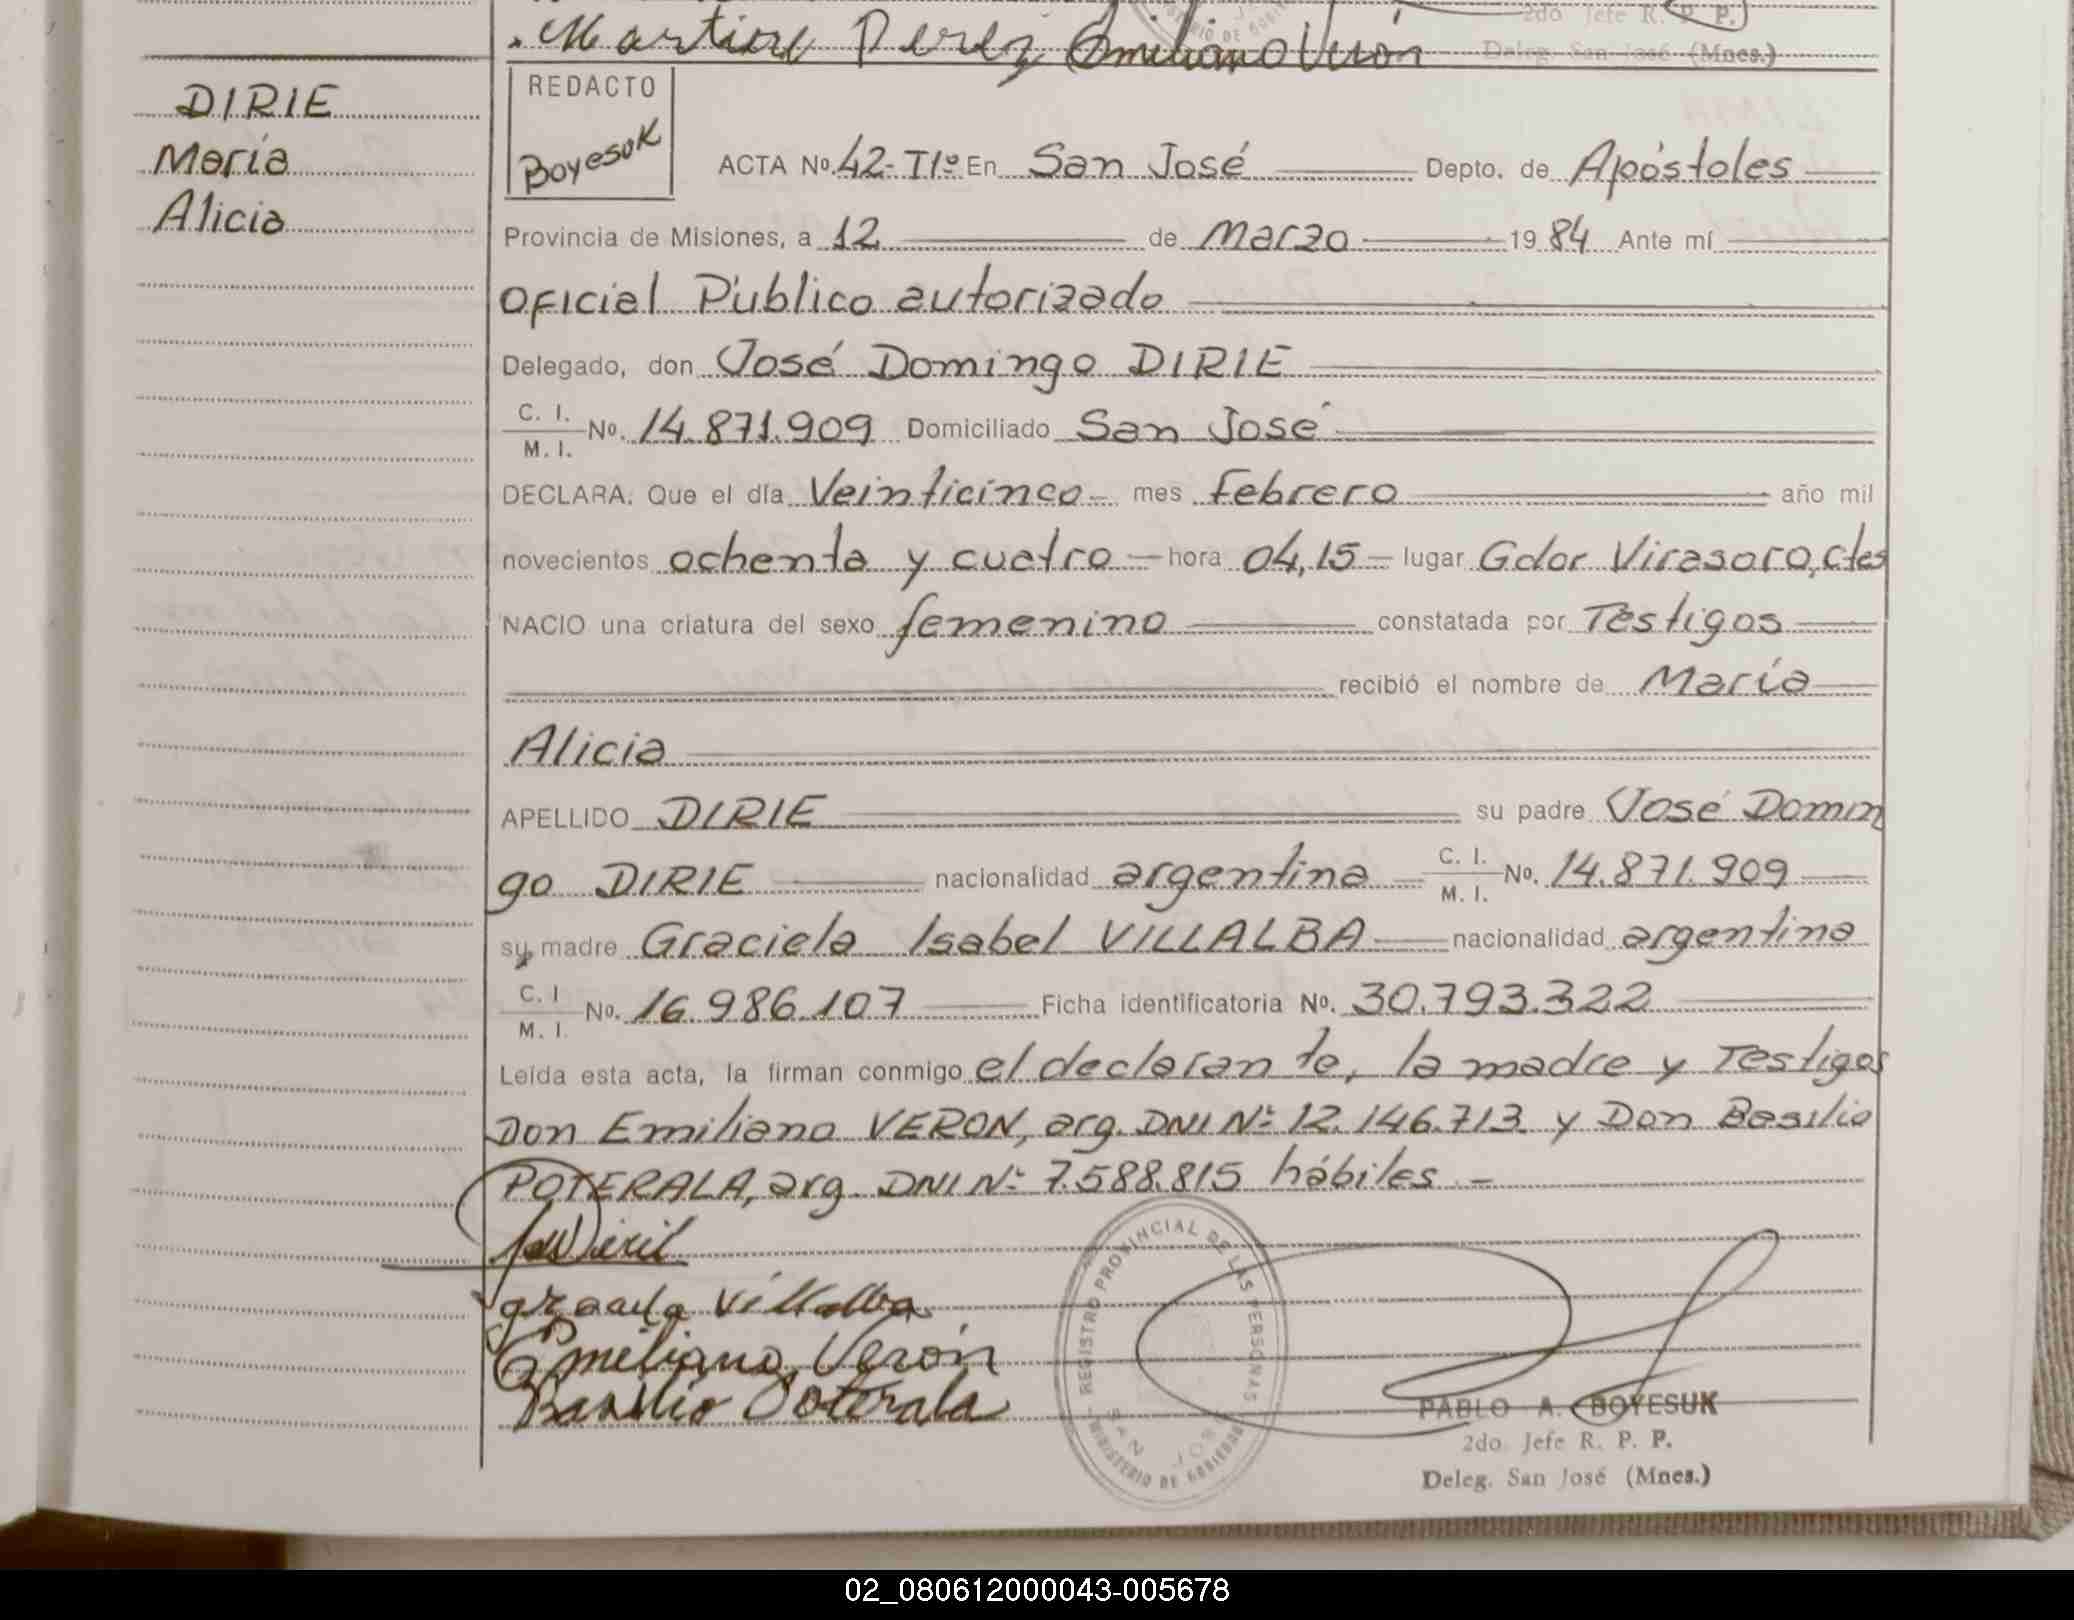 Martiré Perez Emiliano Verón
2do Jefe R. P. P.
Deleg. San José (Mnes.)
DIRIE
María
Alicia
REDACTO
Boyesuk
ACTA No. 42-T1º En San José Depto. de Apóstoles
Provincia de Misiones, a 12 de Marzo 1984 Ante mí
Oficial Público autorizado
Delegado, don José Domingo DIRIE
C. I.
M. I.
No. 14.871.909 Domiciliado San José
DECLARA: Que el día Veinticinco mes Febrero año mil
novecientos ochenta y cuatro hora 04,15 lugar Gdor Virasoro, Ctes
NACIO una criatura del sexo femenino constatada por Testigos
recibió el nombre de María
Alicia
APELLIDO DIRIE su padre José Domin
go DIRIE nacionalidad argentina C. I. M. I. No. 14.871.909
su madre Graciela Isabel VILLALBA nacionalidad argentina
C. I
M. I.
No. 16.986.107 Ficha identificatoria No. 30.793.322
Leída esta acta, la firman conmigo el declarante, la madre y Testigos
Don Emiliano VERON, arg. DNI Nº 12.146.713 y Don Basilio
POTERALA, arg. DNI Nº 7.588.815 hábiles.-
graciela Villalba
Emiliano Verón
Basilio Poterala
REGISTRO PROVINCIAL DE LAS PERSONAS
MINISTERIO DE GOBIERNO
SAN JOSE
PABLO A. BOYESUK
2do. Jefe R. P. P.
Deleg. San José (Mnes.)
02_080612000043-005678